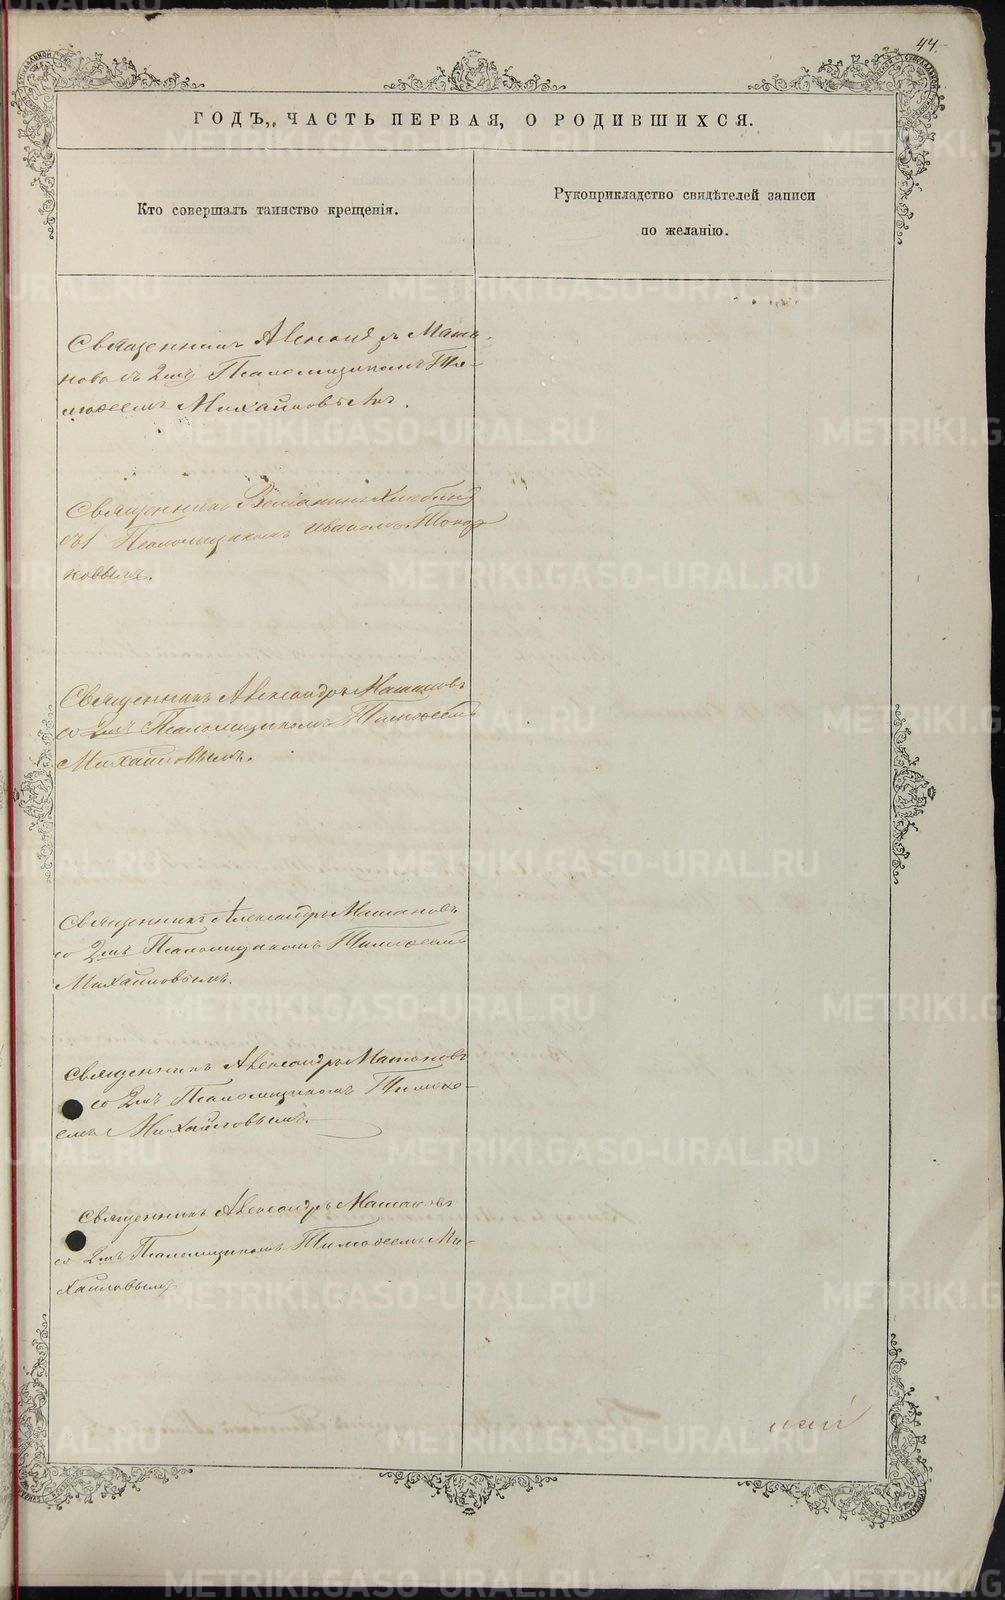 44.
ГОДЪ, ЧАСТЬ ПЕРВАЯ, О РОДИВШИХСЯ.
Кто совершалъ таинство крещенія.
Рукоприкладство свидѣтелей записи
по желанію.
Священникъ Александръ Маша-
новъ съ 2мъ Псаломщикомъ Ти-
моѳеемъ Михайловымъ.
Священникъ Хлѣбинъ
съ 1 Псаломщикомъ Иваномъ Топор
ковымъ.
Священникъ Александръ Машановъ
со 2мъ Псаломщикомъ Тимоѳеемъ
Михайловымъ.
Священникъ Александръ Машановъ
со 2мъ Псаломщикомъ Тимоѳеемъ
Михайловымъ.
Священникъ Александръ Машановъ
со 2мъ Псаломщикомъ Тимоѳе-
емъ Михайловымъ.
Священникъ Александръ Машановъ
со 2мъ Псаломщикомъ Тимоѳеемъ Ми-
хайловымъ
METRIKI.GASO-URAL.RU